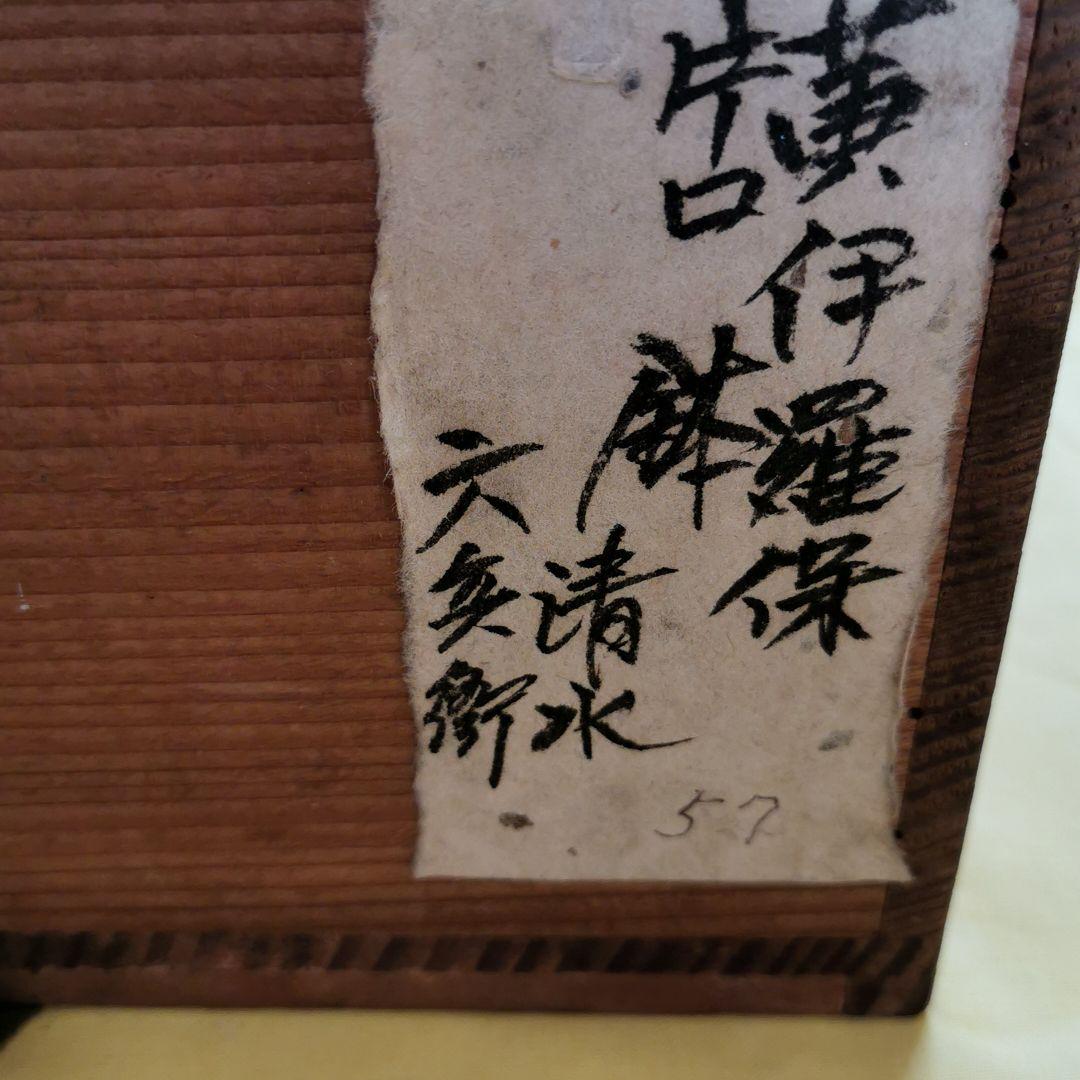 黄伊羅保
片口鉢
清水
六兵衛
57